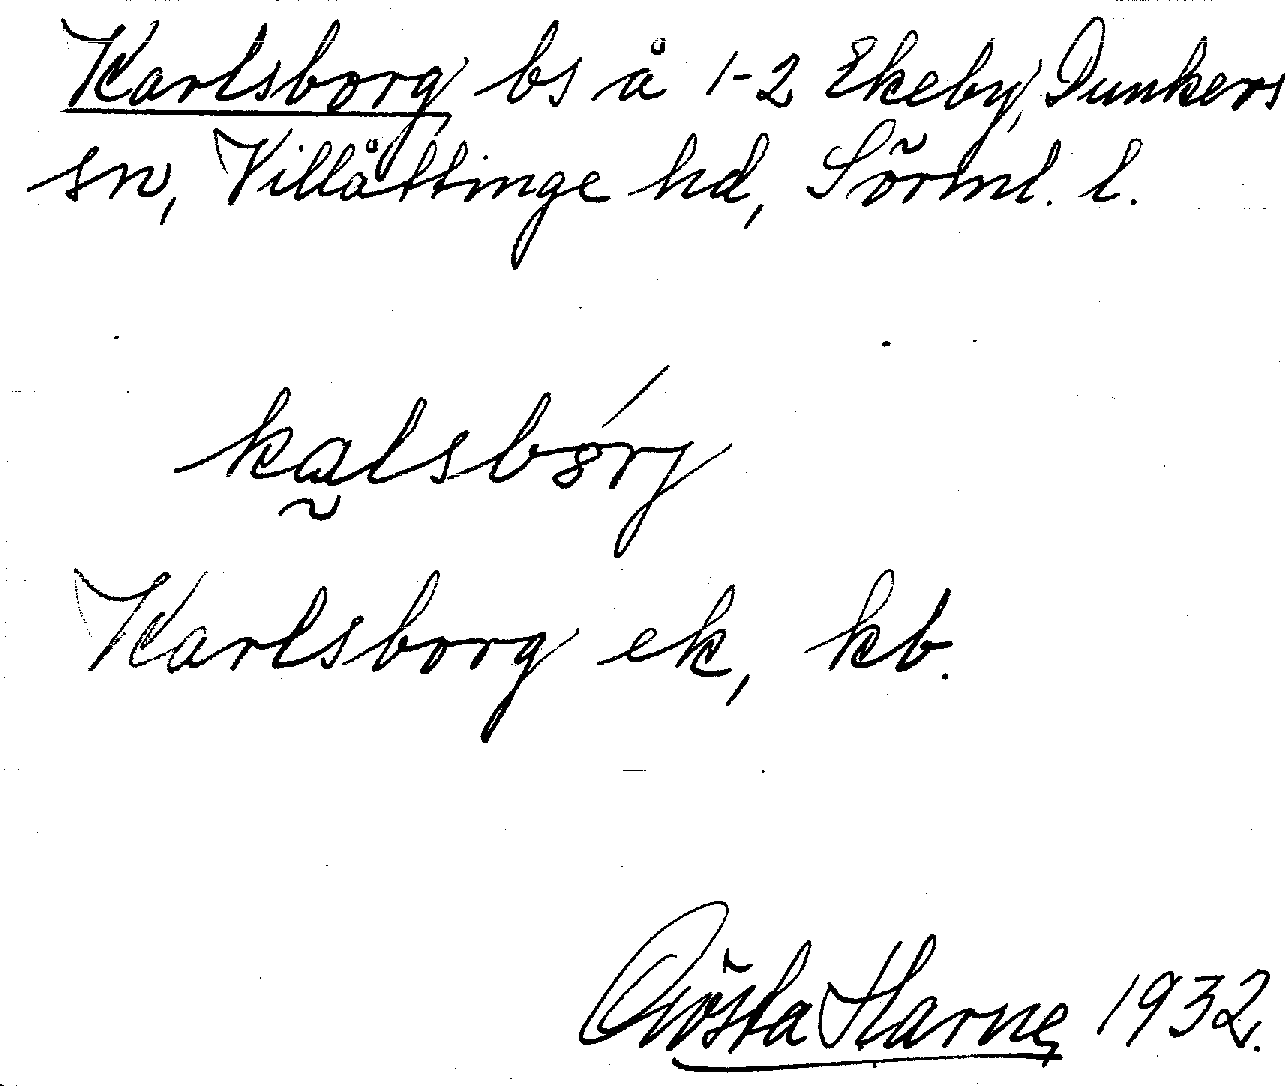 Karlsborg bs å 1-2 Ekeby, Dunkers
sn, Villåttinge hd, Sörml. l.
Karlsborg ek, kb.
Gösta Harne 1932.